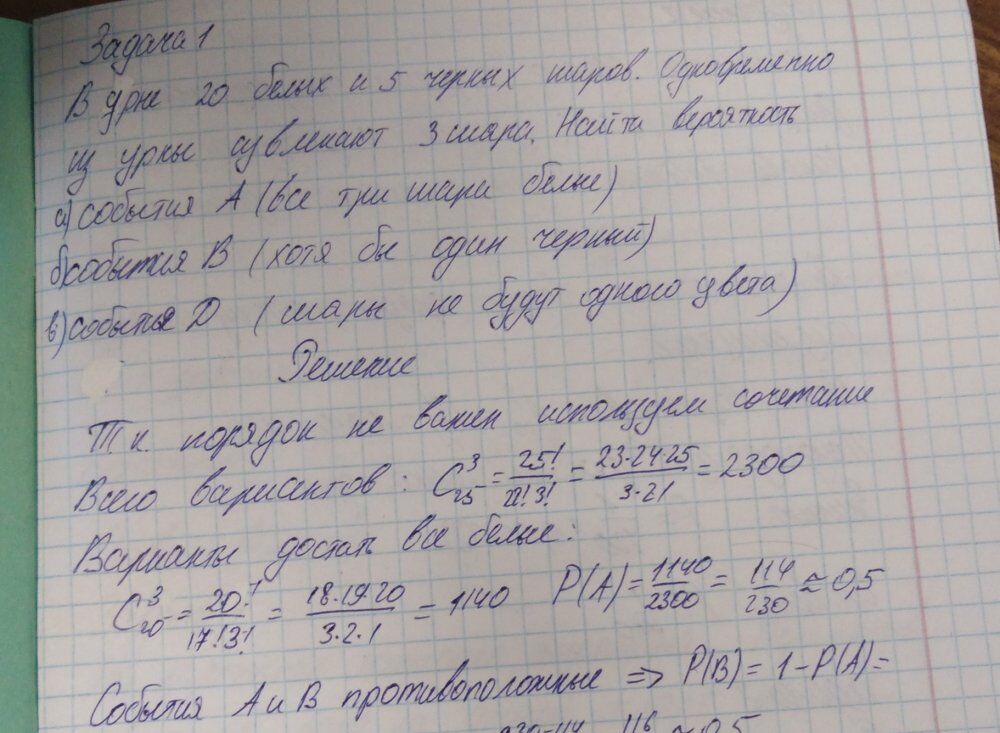 Задача 1
В урне 20 белых и 5 черных шаров. Одновременно
из урны извлекают 3 шара. Найти вероятность
а) события А (все три шара белые)
б) события В (хотя бы один черный)
в) событие D (шары не будут одного цвета)
Решение
Т.к. порядок не важен используем сочетание
Всего вариантов: C₂₅³ = 25!/22!3! = 23·24·25/3·2·1 = 2300
Варианты достать все белые:
C₂₀³ = 20!/17!3! = 18·19·20/3·2·1 = 1140 P(A) = 1140/2300 = 114/230 ≈ 0,5
События А и В противоположные => P(B) = 1 - P(A) =
230-114 116 ≈ 0,5